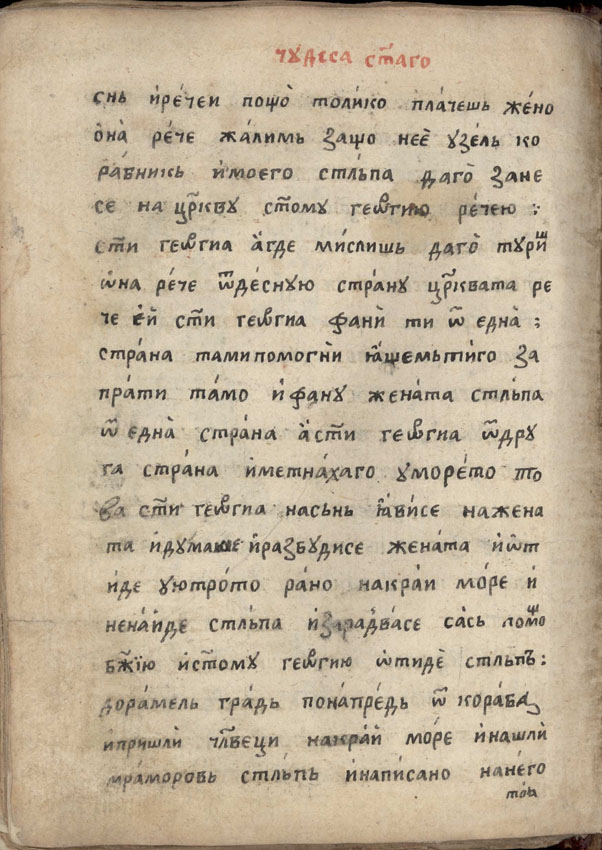 чꙋдеса ст҃аго
снь и҆ре́чеи пощо̀ толи́ко пла́чешь же́но
ѻ҆на̀ ре́че жа́лимь за́що нее̑ ꙋзе́ль ко
ра́вникь и҆моего стль́па даго̀ зане
се на цр҃квꙋ ст҃омꙋ геѡ҆ргию ре́чею :
ст҃и геѡ҆ргиа а҆́где ми́слишь даго̀ тꙋри́ш
ѡ҆́на ре́че ѿде́снꙋю стра́нꙋ цр҃квата ре
че е҆́и ст҃и геѡ҆ргиа фанѝ ти ѿ една̀ :
стра́на тамипомогнѝ ꙗ҆́щемьтиго за
пра́ти та́мо и҆́фанꙋ жена́та стль́па
ѿ една̀ стра́на а҆́ст҃и геѡ҆ргиа ѿдрꙋ
га стра́на и҆метна́хаго ꙋморе́то то
ва ст҃и геѡ҆ргиа насьнь ꙗ҆ви́се нажена
та и҆дꙋмаше и҆разбꙋдисе жена́та и҆ѡт
и́де ꙋютро́то ра́но накра́и мо́ре и҆
нена́иде стль́па и҆зара́двасе сась помощ
бж҃їю и҆ст҃омꙋ геѡ҆ргию ѡ҆тидѐ стльпъ :
дора́мель гра́дь понапре́дь ѿ кора́ба
и҆пришлѝ чл҃вѣци накра́и мо́ре и҆нашлѝ
мра́моровь стль́пь и҆написано нане́го
това